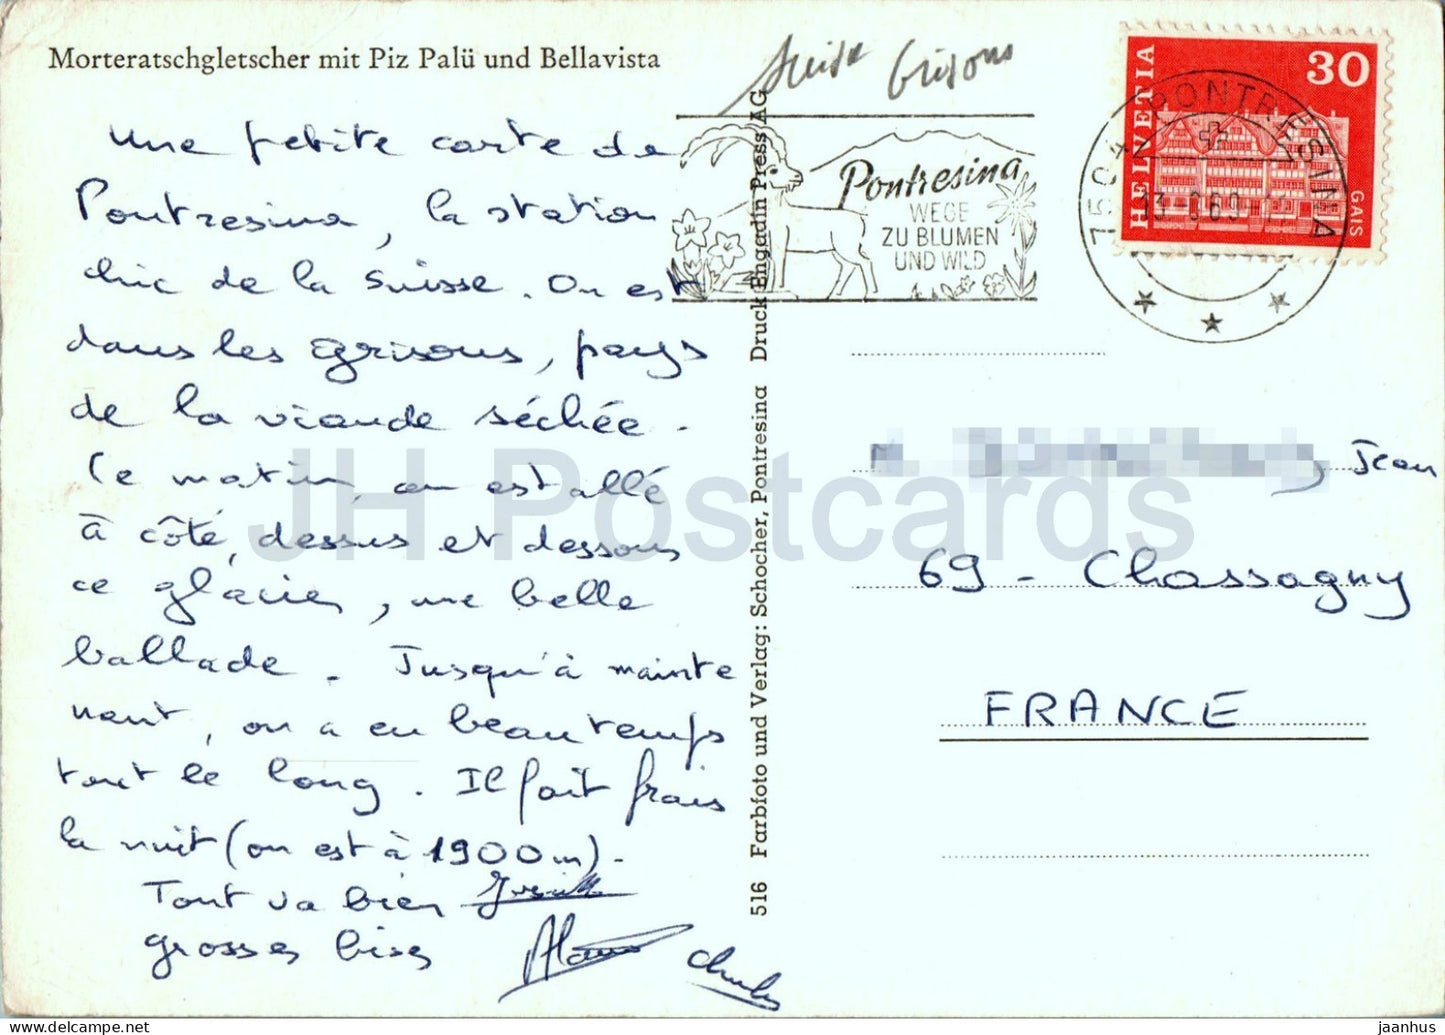 Morteratschgletscher mit Piz Palü und Bellavista
Suisse Grisons
HELVETIA
30
GAIS
PONTRESINA
Pontresina
WEGE
ZU BLUMEN
UND WILD
Une petite carte de
Pontresina, la station
chic de la Suisse. On est
dans les grisons, pays
de la viande séchée.
Ce matin, on est allé
à côté, dessus et dessous
ce glacier, une belle
ballade. Jusqu'à mainte
nant, on a eu beau temps
tout le long. Il fait frais
la nuit (on est à 1900m).
Tout va bien
grosses bises
516 Farbfoto und Verlag: Schocher, Pontresina Druck Engadin Press AG
M. Jean
69 - Chassagny
FRANCE
JH Postcards
jaanhus_______delcampe.net